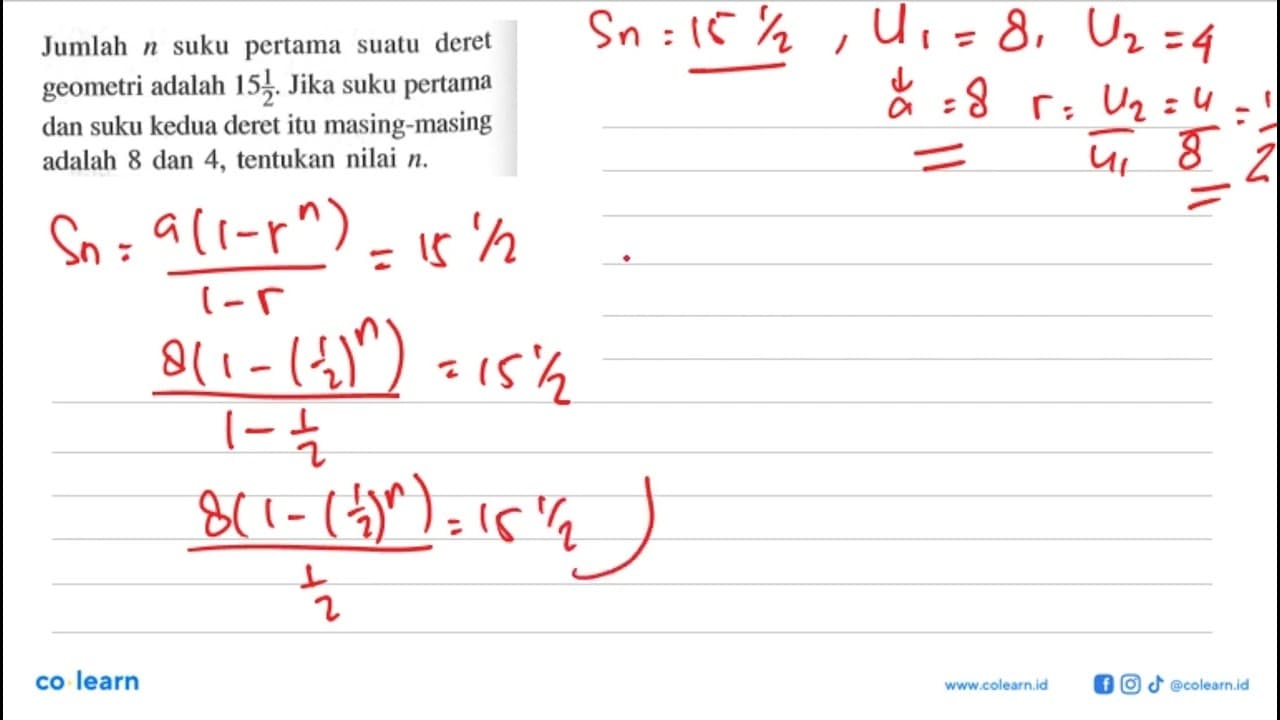 Jumlah n suku pertama suatu deret
geometri adalah 15 1/2. Jika suku pertama
dan suku kedua deret itu masing-masing
adalah 8 dan 4, tentukan nilai n.
Sn = 15 1/2 , U1 = 8, U2 = 4
↓
a = 8 r = U2/U1 = 4/8 = 1/2
Sn = a(1-r^n)/(1-r) = 15 1/2
8(1-(1/2)^n)/(1-1/2) = 15 1/2
8(1-(1/2)^n)/(1/2) = 15 1/2
co learn
www.colearn.id @colearn.id